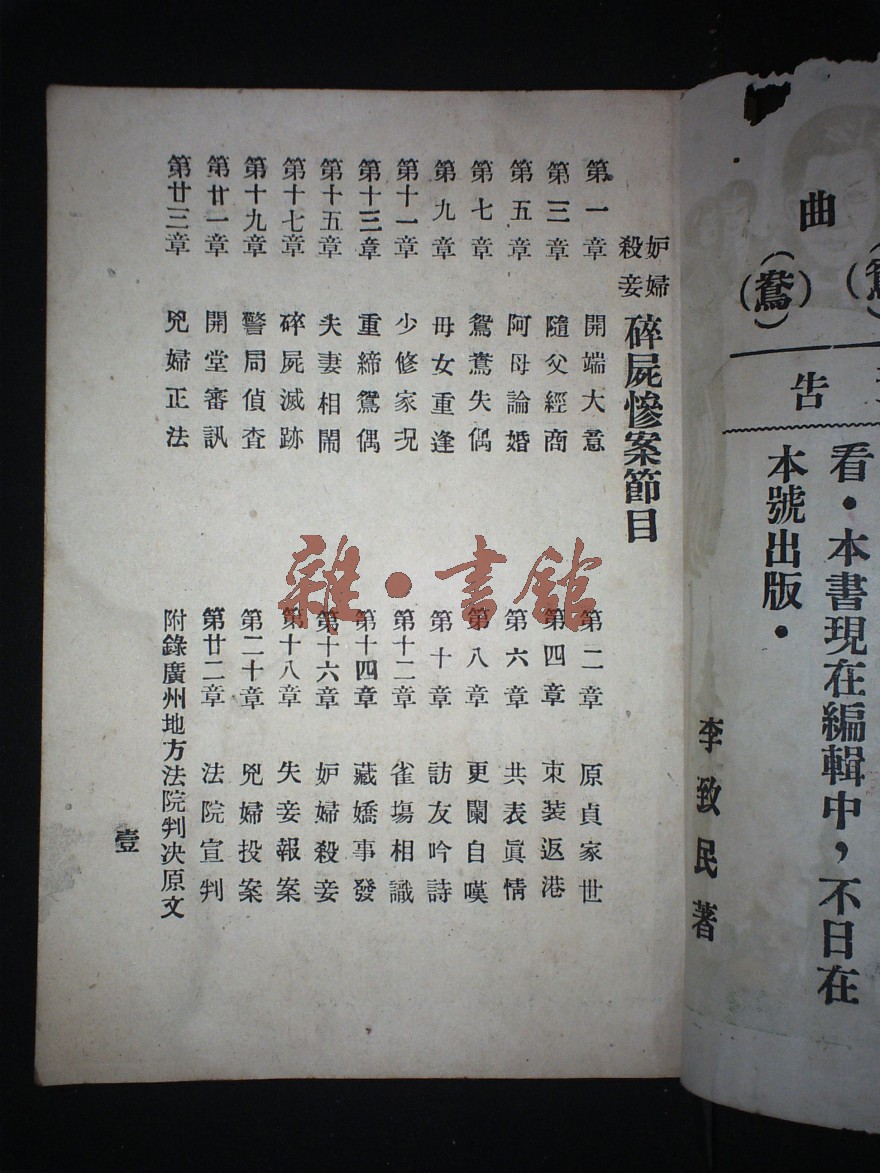 曲
(鴛)
告
看・本書現在編輯中，不日在
本號出版・
李致民著
妒婦
殺妾
碎屍慘案節目
第一章 開端大意
第二章 原貞家世
第三章 隨父經商
第四章 束裝返港
第五章 阿母論婚
第六章 共表眞情
第七章 鴛鴦失偶
第八章 更闌自嘆
第九章 母女重逢
第十章 訪友吟詩
第十一章 少修家況
第十二章 雀塲相識
第十三章 重締鴛偶
第十四章 藏嬌事發
第十五章 夫妻相鬧
第十六章 妒婦殺妾
第十七章 碎屍滅跡
第十八章 失妾報案
第十九章 警局偵查
第二十章 兇婦投案
第廿一章 開堂審訊
第廿二章 法院宣判
第廿三章 兇婦正法
附錄廣州地方法院判决原文
壹
雜・書館